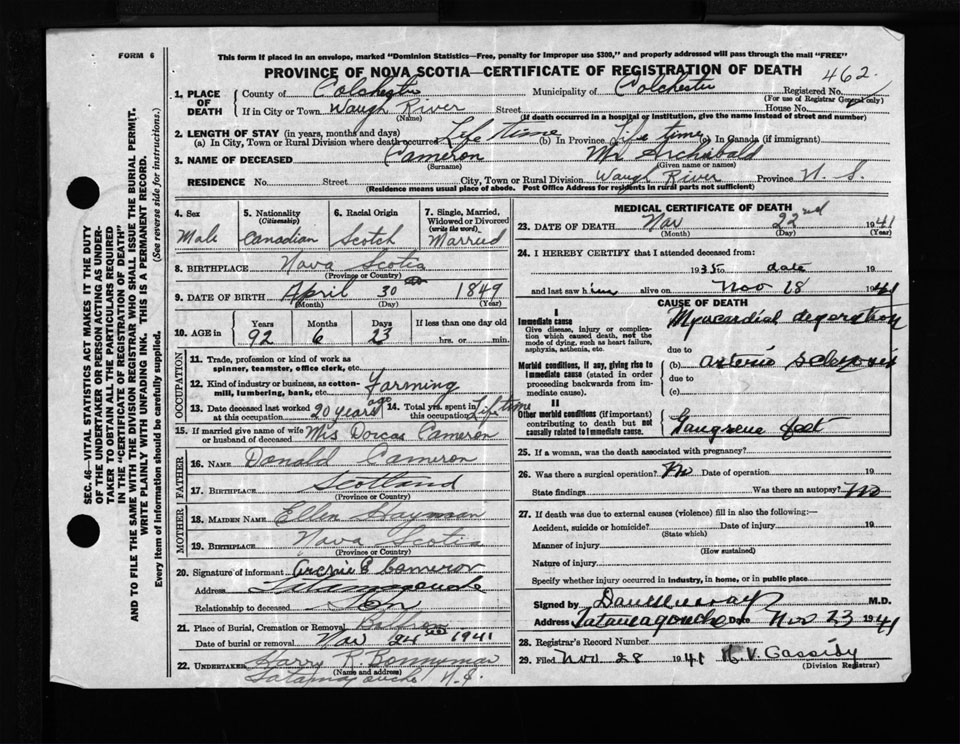 FORM 6
This form if placed in an envelope, marked "Dominion Statistics—Free, penalty for improper use $300," and properly addressed will pass through the mail "FREE"
PROVINCE OF NOVA SCOTIA—CERTIFICATE OF REGISTRATION OF DEATH 462.
1. PLACE OF DEATH County of Colchester Municipality of Colchester Registered No.
(For use of Registrar General only)
If in City or Town Waugh River Street House No.
(Name) (If death occurred in a hospital or institution, give the name instead of street and number)
2. LENGTH OF STAY (in years, months and days)
(a) In City, Town or Rural Division where death occurred Life time (b) In Province Life time (c) In Canada (if immigrant)
3. NAME OF DECEASED Cameron Mr Archibald
(Surname) (Given name or names)
RESIDENCE No. Street City, Town or Rural Division Waugh River Province N. S.
(Residence means usual place of abode. Post Office Address for residents in rural parts not sufficient)
SEC. 46—VITAL STATISTICS ACT MAKES IT THE DUTY
OF THE UNDERTAKER OR PERSON ACTING AS UNDER-
TAKER TO OBTAIN ALL THE PARTICULARS REQUIRED
IN THE "CERTIFICATE OF REGISTRATION OF DEATH"
AND TO FILE THE SAME WITH THE DIVISION REGISTRAR WHO SHALL ISSUE THE BURIAL PERMIT.
WRITE PLAINLY WITH UNFADING INK. THIS IS A PERMANENT RECORD.
Every item of information should be carefully supplied. (See reverse side for instructions.)
4. Sex 5. Nationality 6. Racial Origin 7. Single, Married,
(Citizenship) Widowed or Divorced
(write the word)
Male Canadian Scotch Married
8. BIRTHPLACE Nova Scotia
(Province or Country)
9. DATE OF BIRTH April 30 1849
(Month) (Day) (Year)
10. AGE in Years Months Days If less than one day old
92 6 23 hrs. or min.
OCCUPATION
11. Trade, profession or kind of work as
spinner, teamster, office clerk, etc.
12. Kind of industry or business, as cotton-
mill, lumbering, bank, etc. Farming
13. Date deceased last worked at this occupation 20 years ago 14. Total yrs. spent in this occupation Life time
15. If married give name of wife
or husband of deceased Mrs Dorcas Cameron
FATHER
16. NAME Donald Cameron
17. BIRTHPLACE Scotland
(Province or Country)
MOTHER
18. MAIDEN NAME Ellen Hayman
19. BIRTHPLACE Nova Scotia
(Province or Country)
20. Signature of informant Archie E Cameron
Address Tatamagouche
Relationship to deceased Son
21. Place of Burial, Cremation or Removal
Date of burial or removal Nov 24 1941
22. UNDERTAKER Harry R. Bonnyman
(Name and address)
Tatamagouche N.S.
MEDICAL CERTIFICATE OF DEATH
23. DATE OF DEATH Nov 22nd 1941
(Month) (Day) (Year)
24. I HEREBY CERTIFY that I attended deceased from:
1935 to date 19
and last saw him alive on Nov 18 1941
CAUSE OF DEATH
I
Immediate cause Myocardial
Give disease, injury or complica-
tion which caused death, not the
mode of dying, such as heart failure,
asphyxia, asthenia, etc.
due to
Morbid conditions, if any, giving rise to (b)
immediate cause (stated in order due to
proceeding backwards from im- (c)
mediate cause).
II
Other morbid conditions (if important)
contributing to death but not
causally related to immediate cause. Gangrene feet
25. If a woman, was the death associated with pregnancy?
26. Was there a surgical operation? No Date of operation 19
State findings Was there an autopsy? No
27. If death was due to external causes (violence) fill in also the following:—
Accident, suicide or homicide? Date of injury 19
(State which)
Manner of injury
(How sustained)
Nature of injury
Specify whether injury occurred in industry, in home, or in public place
Signed by M.D.
Address Tatamagouche Date Nov 23 1941
28. Registrar's Record Number
29. Filed Nov 28 1941 R. V. Cassidy
(Division Registrar)